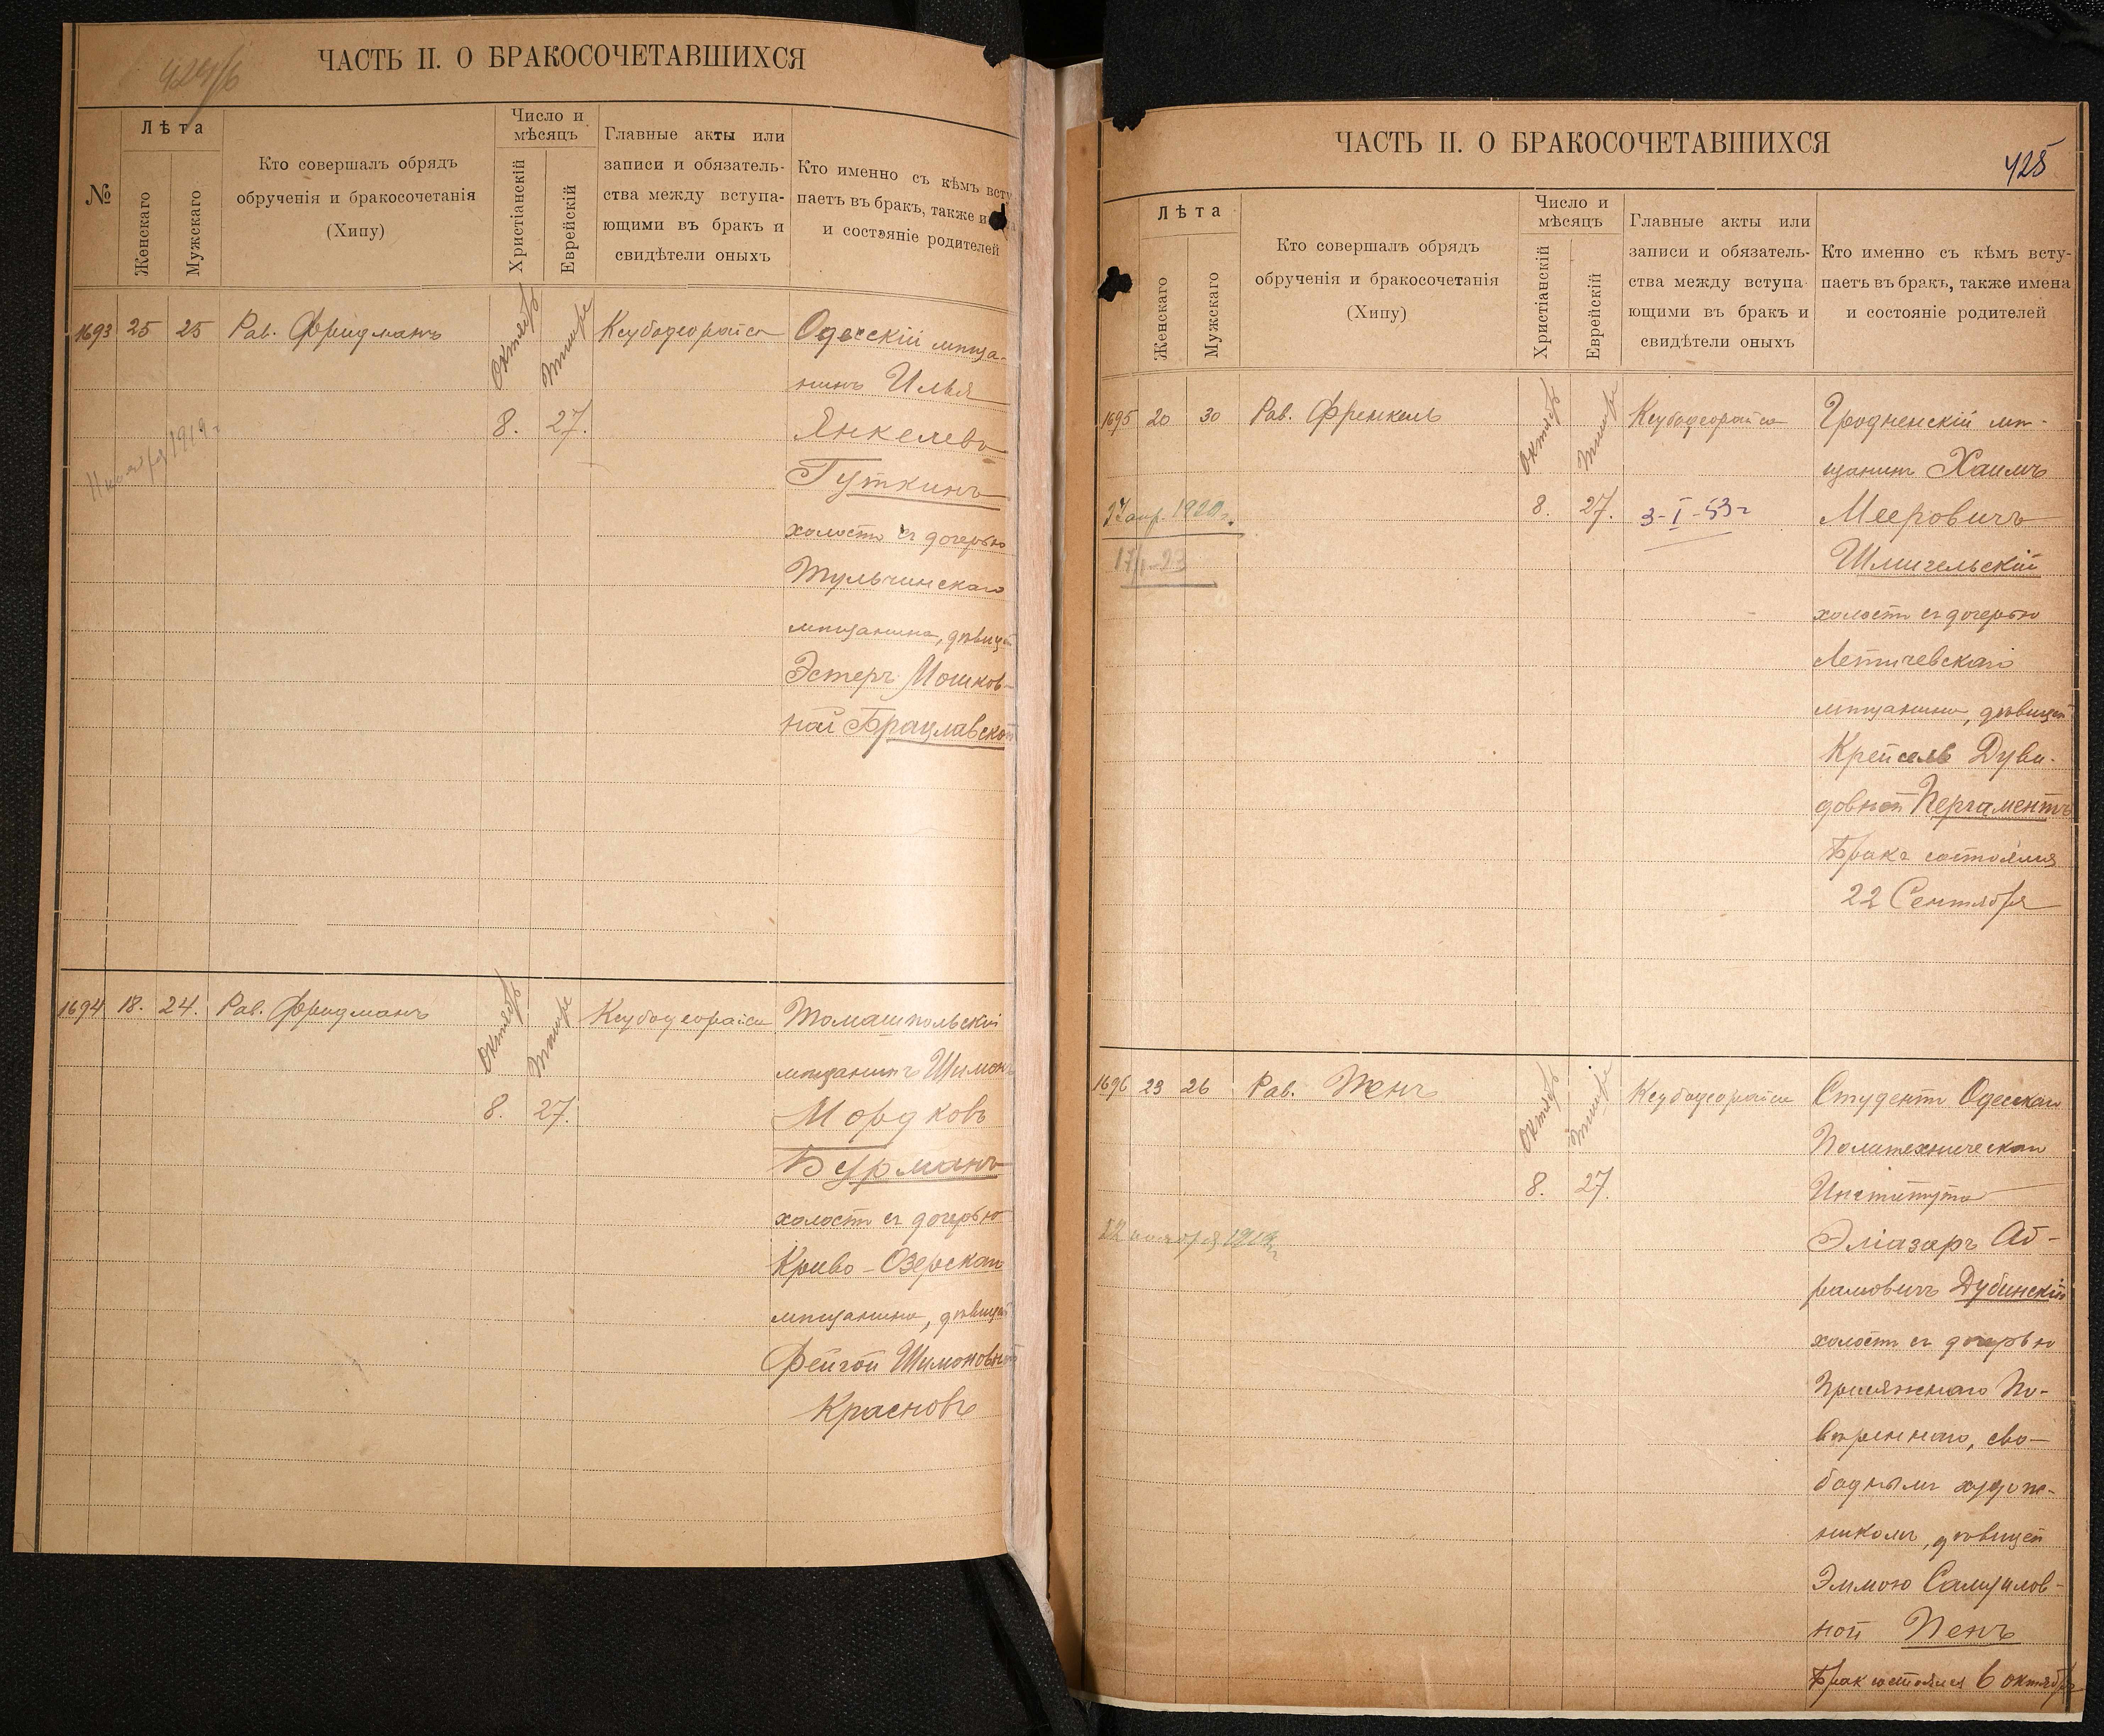 424/б
ЧАСТЬ II. О БРАКОСОЧЕТАВШИХСЯ
№
Лѣта
Женскаго
Мужскаго
Кто совершалъ обрядъ
обрученія и бракосочетанія
(Хипу)
Число и
мѣсяцъ
Христіанскій
Еврейскій
Главные акты или
записи и обязатель-
ства между вступа-
ющими въ бракъ и
свидѣтели оныхъ
Кто именно съ кѣмъ всту
паетъ въ бракъ, также и
и состояніе родителей
1693 25 25 Рав. Фридманъ Октябрь Тишре Ксубодеорайса Одесскій мѣща-
нинъ Илья
8. 27. Янкелевъ
Гуткинъ
ноября 1919 г
холостъ съ дочерью
Тульчинскаго
мѣщанина, дѣвицей
Эстеръ Мошков-
ной Брацлавской
1694 18. 24. Рав. Фридманъ Октябрь Тишре Ксубодеорайса Томашпольскій
мѣщанинъ Шимонъ
8. 27. Мордковъ
Бурманъ
холостъ съ дочерью
Криво-Озерскаго
мѣщанина, дѣвицей
Фейгой Шимоновной
Красновъ
ЧАСТЬ II. О БРАКОСОЧЕТАВШИХСЯ
425
Лѣта
Женскаго
Мужскаго
Кто совершалъ обрядъ
обрученія и бракосочетанія
(Хипу)
Число и
мѣсяцъ
Христіанскій
Еврейскій
Главные акты или
записи и обязатель-
ства между вступа-
ющими въ бракъ и
свидѣтели оныхъ
Кто именно съ кѣмъ всту-
паетъ въ бракъ, также имена
и состояніе родителей
1695 20 30 Рав. Френкель Октябрь Тишре Ксубодеорайса Гродненскій мѣ-
щанинъ Хаимъ
27 апр. 1920 г. 8. 27. 3-I-53 г Мееровичъ
17/I-23 Шмигельскій
холостъ съ дочерью
Летичевскаго
мѣщанина, дѣвицей
Крейсель Дуви-
довной Пергаментъ
Бракъ состоялся
22 Сентября
1696 23 26 Рав. Пенъ Октябрь Тишре Ксубодеорайса Студентъ Одесскаго
Политехническаго
8. 27. Института
12 ноября 1919 г. Эліазаръ Аб-
рамовичъ Дубинскій
холостъ съ дочерью
Присяжнаго По-
вѣреннаго, сво-
боднымъ худож-
никомъ, дѣвицей
Эммою Самуилов-
ной Пенъ
Бракъ состоялся 6 октября